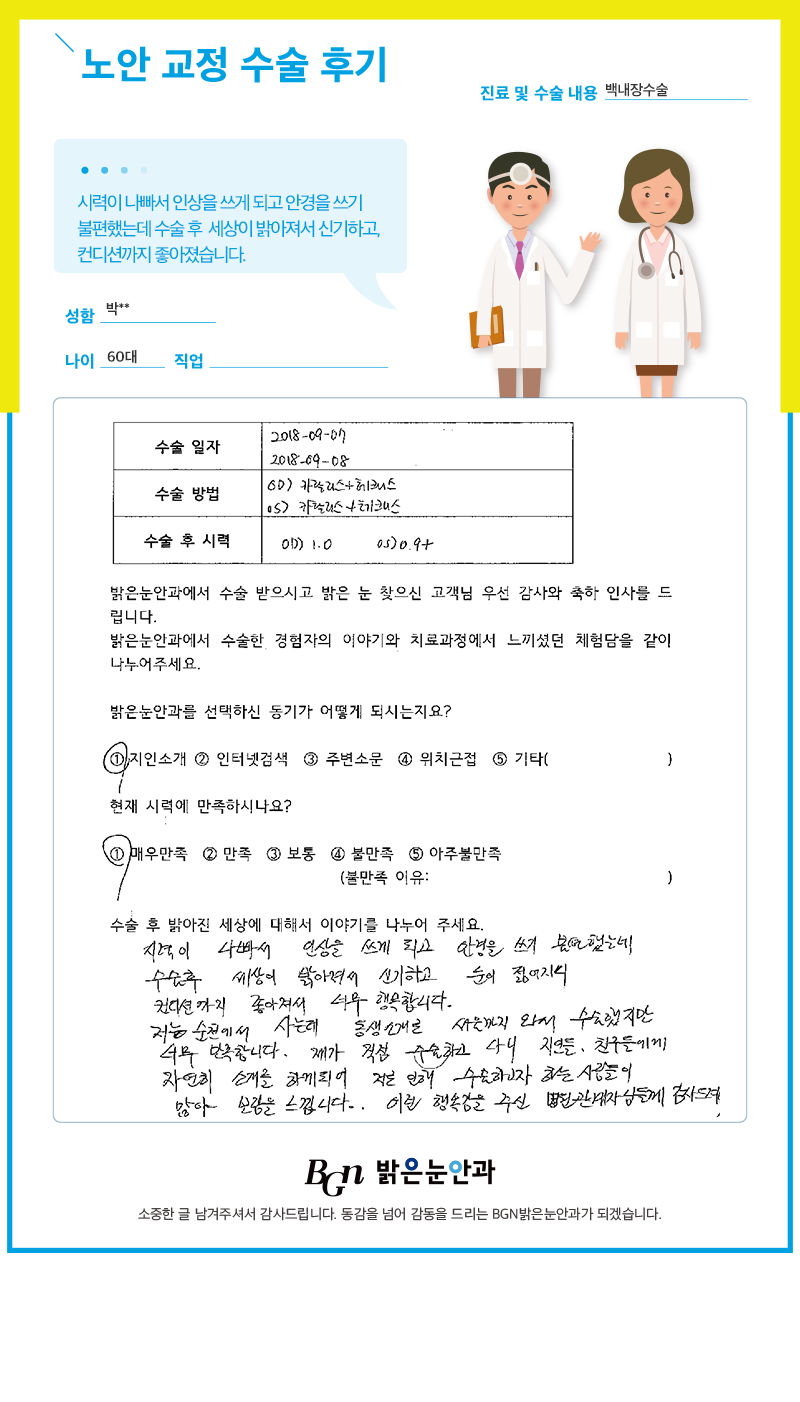 노안 교정 수술 후기
진료 및 수술 내용 백내장수술
시력이 나빠서 인상을 쓰게 되고 안경을 쓰기
불편했는데 수술 후 세상이 밝아져서 신기하고,
컨디션까지 좋아졌습니다.
성함 박**
나이 60대 직업
수술 일자 2018-09-07
2018-09-08
수술 방법 OD) 카탈리스+테크니스
OS) 카탈리스+테크니스
수술 후 시력 OD) 1.0 OS) 0.9+
밝은눈안과에서 수술 받으시고 밝은 눈 찾으신 고객님 우선 감사와 축하 인사를 드
립니다.
밝은눈안과에서 수술한 경험자의 이야기와 치료과정에서 느끼셨던 체험담을 같이
나누어주세요.
밝은눈안과를 선택하신 동기가 어떻게 되시는지요?
① 지인소개 ② 인터넷검색 ③ 주변소문 ④ 위치근접 ⑤ 기타( )
현재 시력에 만족하시나요?
① 매우만족 ② 만족 ③ 보통 ④ 불만족 ⑤ 아주불만족
(불만족 이유: )
수술 후 밝아진 세상에 대해서 이야기를 나누어 주세요.
시력이 나빠서 인상을 쓰게 되고 안경을 쓰기 불편했는데
수술후 세상이 밝아져서 신기하고 눈이 젊어지니
컨디션까지 좋아져서 너무 행복합니다.
저는 순천에서 사는데 동생소개로 서울까지 와서 수술했지만
너무 만족합니다. 제가 직접 수술하고 나니 지인들, 친구들에게
자연히 소개를 하게되어 저로 인해 수술하고자 하는 사람들이
많아 보람을 느낍니다.. 이런 행복감을 주신 관계자님들께 감사드려
BGn 밝은눈안과
소중한 글 남겨주셔서 감사드립니다. 동감을 넘어 감동을 드리는 BGN밝은눈안과가 되겠습니다.